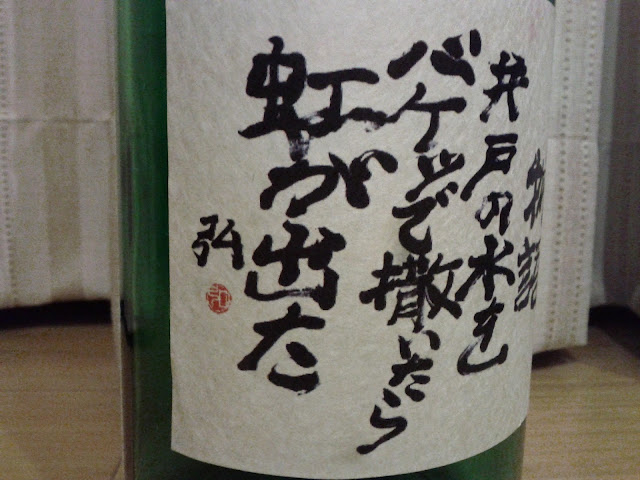 物語
井戸の水を
バケツで撒いたら
虹が出た
弘